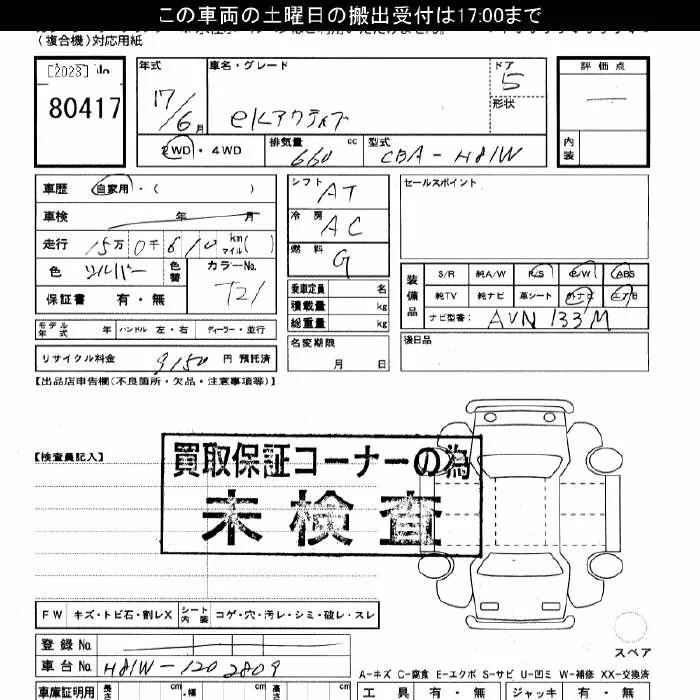 この車両の土曜日の搬出受付は17:00まで
(複合機)対応用紙
[2023] No
80417
年式 17/6月
車名・グレード eKアクティブ
ドア 5
形状
評価点 —
内装
2WD・4WD
排気量 660 cc
型式 CBA-H81W
車歴 自家用・( )
車検 年 月
走行 15万0千610 km マイル( )
色 シルバー 色替 カラーNo. T21
保証書 有・無
モデル年式 年 ハンドル 左・右 ディーラー・並行
リサイクル料金 9150 円 預託済
シフト AT
冷房 AC
燃料 G
乗車定員 名
積載量 kg
総重量 kg
名変期限
月 日
セールスポイント
装備品
S/R 純A/W P/S P/W ABS
純TV 純ナビ 革シート 外ナビ
ナビ型番: AVN 133M
後日品
【出品店申告欄(不良箇所・欠品・注意事項等)】
【検査員記入】
買取保証コーナーの為
未検査
FW キズ・トビ石・割レX シート内装 コゲ・穴・汚レ・シミ・破レ・スレ
スペア
登録No.
車台No. H81W-1202809
A-キズ C-腐食 E-エクボ S-サビ U-凹ミ W-補修 XX-交換済
車庫証明用 長さ cm ・幅 cm 高さ cm
工具 有・無 ジャッキ 有・無